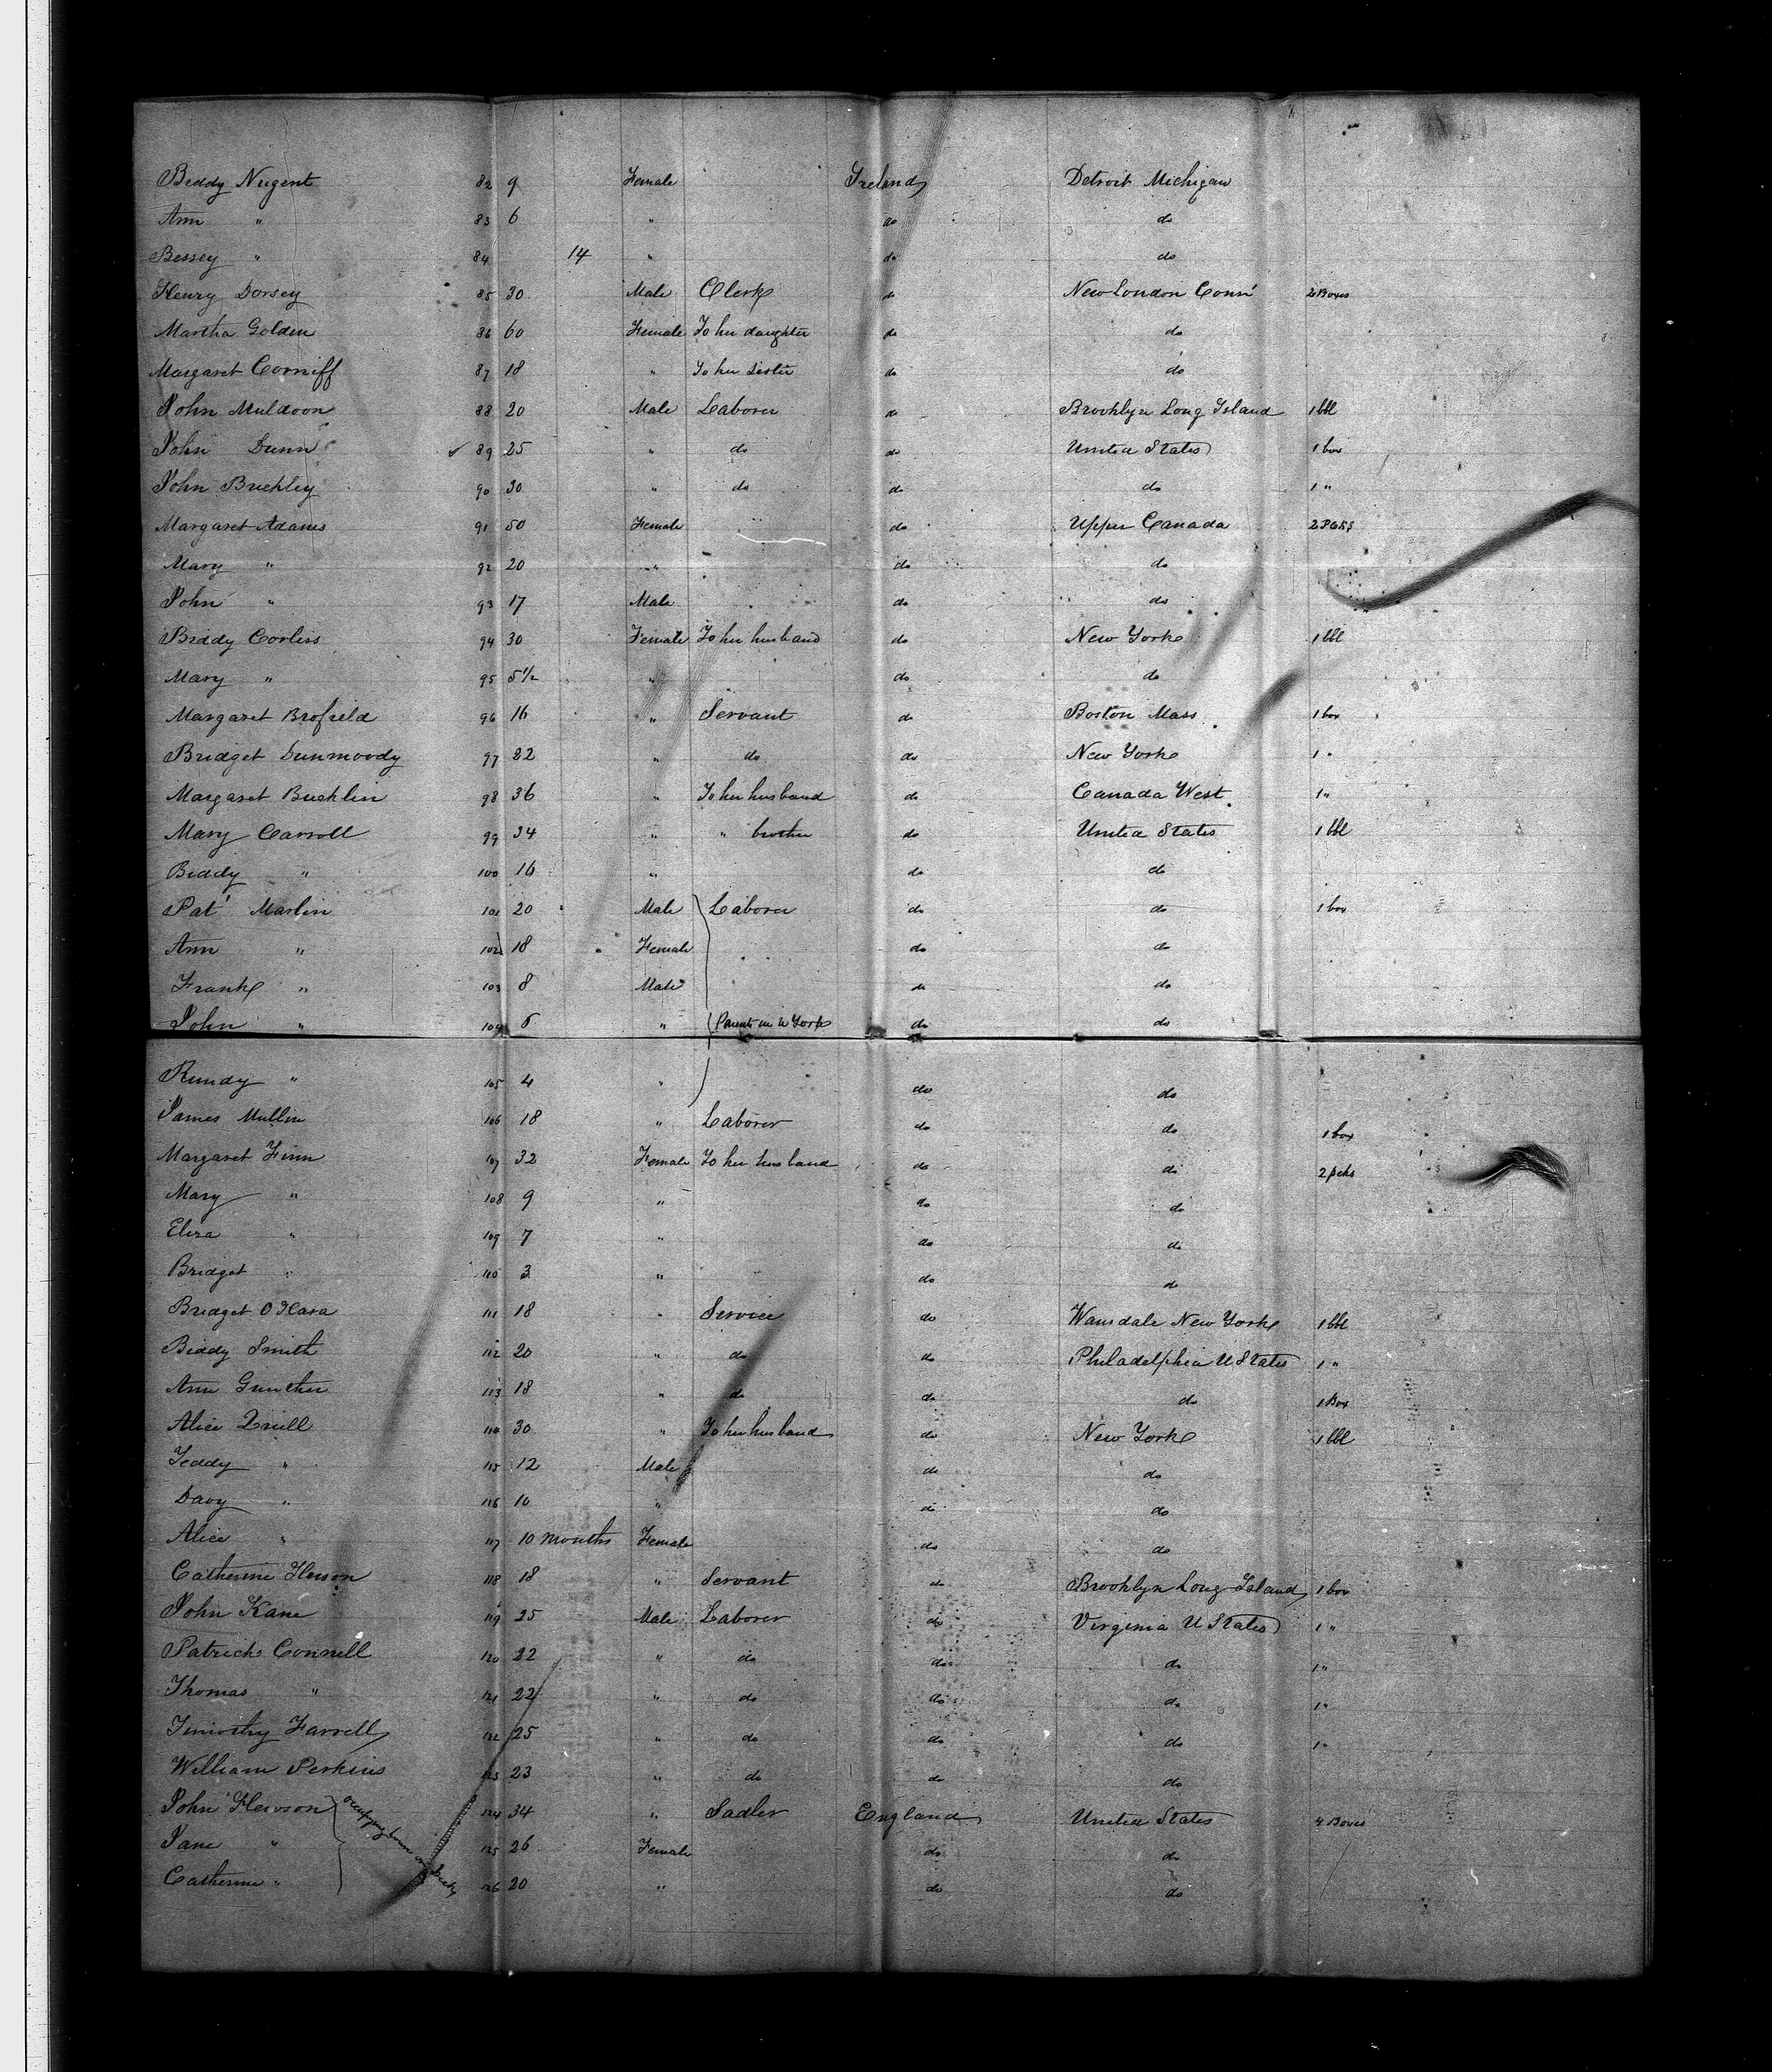 Biddy Nugent 82 9 Female Ireland Detroit Michigan
Ann " 83 6 " do do
Bessey " 84 14 " do do
Henry Dorsey 85 30 Male Clerk do New London Conn' 2 Boxes
Martha Golden 86 60 Female To her daughter do do
Margaret Corniff 87 18 " To her Sister do do
John Muldoon 88 20 Male Laborer do Brooklyn Long Island 1 bbl
John Dunn ✓ 89 25 " do do United States 1 box
John Buckley 90 30 " do do do 1 "
Margaret Adams 91 50 Female do Upper Canada 2 PCKS
Mary " 92 20 " do do
John " 93 17 Male do do
Biddy Corliss 94 30 Female To her husband do New York 1 bbl
Mary " 95 5½ " do do
Margaret Brofield 96 16 " Servant do Boston Mass 1 box
Bridget Dunmoody 97 22 " do do New York 1 "
Margaret Buchlin 98 36 " To her husband do Canada West 1 "
Mary Carroll 99 34 " " brother do United States 1 bbl
Biddy " 100 16 " do do
Pat' Martin 101 20 Male Laborer do do 1 box
Ann " 102 18 Female do do
Frank " 103 8 Male do do
John " 104 6 " Parents in N York do do
Rundy " 105 4 " do do
James Mullin 106 18 " Laborer do do 1 box
Margaret Finn 107 32 Female To her husband do do 2 pcks
Mary " 108 9 " do do
Eliza " 109 7 " do do
Bridget " 110 3 " do do
Bridget O Hara 111 18 " Service do Wansdale New York 1 bbl
Biddy Smith 112 20 " do do Philadelphia U States 1 "
Ann Gunther 113 18 " do do do 1 Box
Alice 114 30 " To her husband do New York 1 bbl
Teddy " 115 12 Male do do
Davy " 116 10 " do do
Alice " 117 10 months Female do do
Catherine 118 18 " Servant do Brooklyn Long Island 1 box
John Kane 119 25 Male Laborer do Virginia U States 1 "
Patrick Connell 120 22 " do do do 1 "
Thomas " 121 22 " do do do 1 "
Timothy Farrell 122 25 " do do do 1 "
William Perkins 123 23 " do do do
John Hewson 124 34 " Sadler England United States 4 Boxes
occupying on deck
Jane " 125 26 Female do do
Catherine " 126 20 " do do